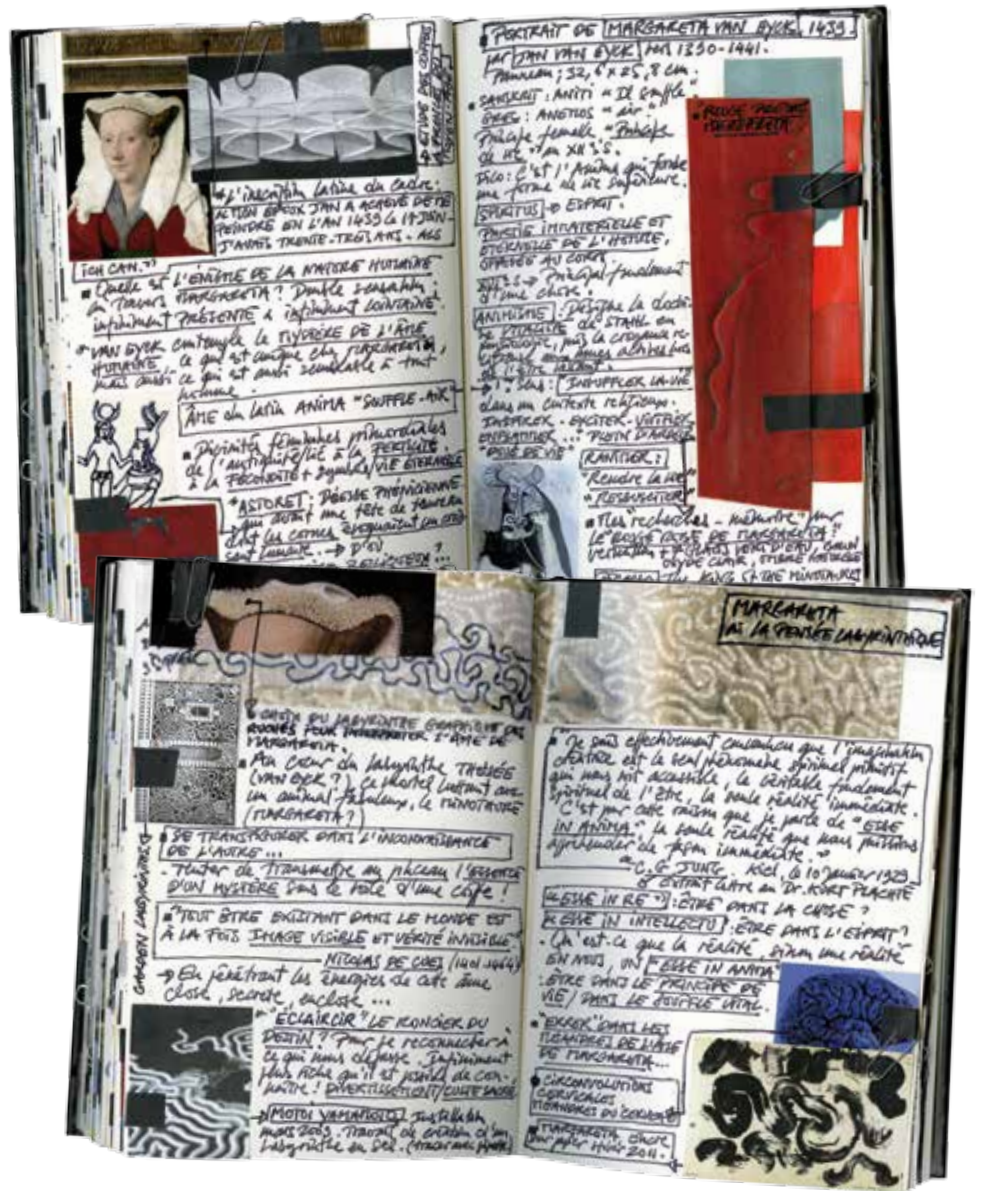 4 ETUDE DES COIFFES
L'inscription latine du cadre:
MON EPOUX JAN A ACHEVÉ DE ME
PEINDRE EN L'AN 1439 LE 17 JUIN-
J'AVAIS TRENTE-TROIS ANS - ALS
ICH CAN."
Quelle est L'ÉNIGME DE LA NATURE HUMAINE
à travers MARGARETA? Double sensation:
infiniment PRÉSENTE & infiniment LOINTAINE.
VAN EYCK contemple le MYSTÈRE DE L'ÂME
HUMAINE. ce qui est unique chez MARGARETA,
mais aussi ce qui est aussi semblable à tout
homme.
ÂME du latin ANIMA "SOUFFLE-AIR"
Divinités féminines primordiales
de l'antiquité/lié à la FERTILITÉ
à la FÉCONDITÉ + symbole/VIE ÉTERNELLE
"ASTORET: DÉESSE PHÉNICIENNE
qui avait une tête de taureau
dont les cornes évoquaient un crois-
sant lunaire. → D'où
PORTRAIT DE MARGARETA VAN EYCK, 1439.
par JAN VAN EYCK 1390-1441.
Panneau; 32,6 x 25,8 cm.
SANSKRIT: ANITI "Il souffle"
GREC: ANEMOS "air"
Principe femelle "Principe
de vie" au XII°S.
Dico: C'est l'Anima qui fonde
une forme de vie supérieure.
SPIRITUS → ESPRIT.
PARTIE IMMATERIELLE ET
ETERNELLE DE L'HOMME,
OPPOSÉE AU CORPS
→ Principal fondement
d'une chose.
ANIMISME: Désigne la doctri-
ne VITALISTE de STAHL en
physiologie, puis la croyance re-
de l'être vivant.
→ 1° sens: "INSUFFLER LA VIE
dans un contexte religieux.
INSPIRER - EXCITER - VIVIFIER
ENFLAMMER... PLEIN D'ARDEUR
"DÉSIR DE VIE"
RANIMER:
"Rendre la vie"
"RESSUSCITER"
"ROUGE
MARGARETA"
Mes "recherches - mémoire" pur
LE ROUGE ROSE DE MARGARETA:
vermillon + GLACIS VERT D'EAU, BRUN
OXYDE CLAIR, OMBRE NATURELLE
THE KING OF THE MINOTAURS
MARGARETA
OU LA PENSÉE LABYRINTHIQUE
CHOIX DU LABYRINTHE GRAPHIQUE DES
RUCHES POUR INTERPRETER L'ÂME DE
MARGARETA.
Au cœur du labyrinthe THÉSÉE
(VAN EYCK?) ce mortel luttant avec
un animal fabuleux, le MINOTAURE
(MARGARETA?)
SE TRANSFIGURER DANS L'INCONNAISSANCE
DE L'AUTRE...
- Tenter de transmettre au pinceau l'ESSENCE
D'UN MYSTÈRE sous le voile d'une coiffe!
"TOUT ÊTRE EXISTANT DANS LE MONDE EST
À LA FOIS IMAGE VISIBLE ET VÉRITÉ INVISIBLE"
NICOLAS DE CUES (1401-1464)
→ En pénétrant les énergies de cette âme
close, secrète, enclose...
"ÉCLAIRCIR" LE RONCIER DU
DESTIN? Pour se reconnecter à
ce qui nous dépasse. Infiniment
plus riche qu'il est possible de con-
naître! DIVERTISSEMENT/
→ MOTOI YAMAMOTO, Installation
mars 2009. Travail de création d'un
Labyrinthe au sel.
GARDEN LABYRINTHE
"Je suis effectivement convaincu que l'imagination
créatrice est le seul phénomène spirituel primitif
qui nous soit accessible, le véritable fondement
spirituel de l'être, la seule réalité immédiate.
C'est pour cette raison que je parle de "ESSE
IN ANIMA", la seule réalité que nous puissions
appréhender de façon immédiate."
C.G JUNG. Kiel, le 10 janvier 1929
extrait lettre au Dr. KURT PLACHTE
"ESSE IN RE": ÊTRE DANS LA CHOSE?
"ESSE IN INTELLECTU": ÊTRE DANS L'ESPRIT?
- Qu'est-ce que la réalité, sinon une réalité
EN NOUS, UN "ESSE IN ANIMA"
: ÊTRE DANS LE PRINCIPE DE
VIE/ DANS LE SOUFFLE VITAL.
"ERRER" DANS LES
MÉANDRES DE L'ÂME
DE MARGARETA...
CIRCONVOLUTIONS
MÉANDRES DU CERVEAU
MARGARETA encre
sur papier 2011.